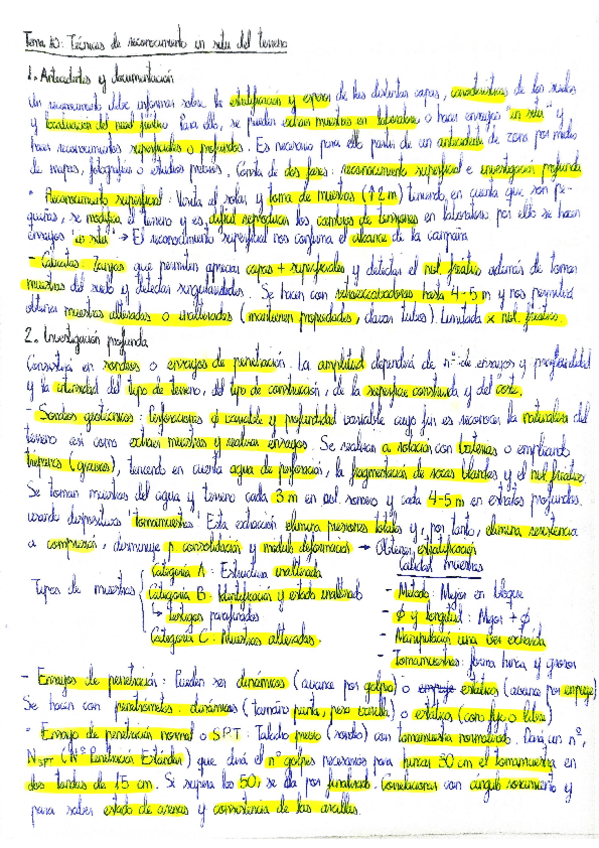 Tema 10: Técnicas de reconocimiento in situ del terreno
1. Antecedentes y documentación
Un reconocimiento debe informar sobre la estratificación y espesor de las distintas capas, características de los suelos
y localización del nivel freático. Para ello, se pueden extraer muestras en laboratorio o hacer ensayos "in situ" y
hacer reconocimientos superficiales o profundos. Es necesario para ello partir de un antecedente de zona por medio
de mapas, fotografías o estudios previos. Consta de dos fases: reconocimiento superficial e investigación profunda
* Reconocimiento superficial: Visita al solar y toma de muestras (↑2 m) teniendo en cuenta que son pe-
queñas, se modifica el terreno y es difícil reproducir los cambios de tensiones en laboratorio por ello se hacen
ensayos "in situ" → El reconocimiento superficial nos confirma el alcance de la campaña
- Calicatas: Zanjas que permiten apreciar capas + superficiales y detectar el niv. freático además de tomar
muestras del suelo y detectar singularidades. Se hacen con retroexcavadoras hasta 4-5 m y nos permitirá
obtener muestras alteradas o inalteradas (mantienen propiedades, clavar tubos). Limitada x niv. freático.
2. Investigación profunda
Consistirá en sondeos o ensayos de penetración. La amplitud dependerá de nº de ensayos y profundidad
y la intensidad del tipo de terreno, del tipo de construcción, de la superficie construida y del coste.
- Sondeos geotécnicos: Perforaciones ϕ variable y profundidad variable cuyo fin es reconocer la naturaleza del
terreno así como extraer muestras y realizar ensayos. Se realizan a rotación con baterías o empleando
trépanos (gravas), teniendo en cuenta agua de perforación, la fragmentación de rocas blandas y el niv. freático.
Se toman muestras del agua y terreno cada 3 m en pol. somero y cada 4-5 m en estratos profundos.
usando dispositivos 'tomamuestras'. Esta extracción elimina presiones totales y, por tanto, elimina resistencia
a compresión, disminuye p. consolidación y módulo deformación → Obtener estratificación
Calidad muestras
Tipos de muestras
Categoría A: Estructura inalterada
Categoría B: Identificación y estado inalterado
↳ testigos parafinados
Categoría C: Muestras alteradas.
- Método: Mejor en bloque
- ϕ y longitud: Mejor + ϕ
- Manipulación una vez extraída
- Tomamuestras: forma hinca y grosor
- Ensayos de penetración: Pueden ser dinámicos (avance por golpeo) o estáticos (avance por empuje)
Se hacen con penetrómetros: dinámicos (tamaño punta, peso varilla) o estáticos (con fijo o libre)
- Ensayo de penetración normal o SPT: Taladro previo (sondeo) con tomamuestra normalizado. Dará un nº,
N SPT (Nº Penetración Estándar) que dirá el nº golpes necesarios para hincar 30 cm el tomamuestra en
dos tandas de 15 cm. Si supera los 50, se da por finalizado. Correlaciones con ángulo rozamiento y
para saber estado de arenas y consistencia de las arcillas.